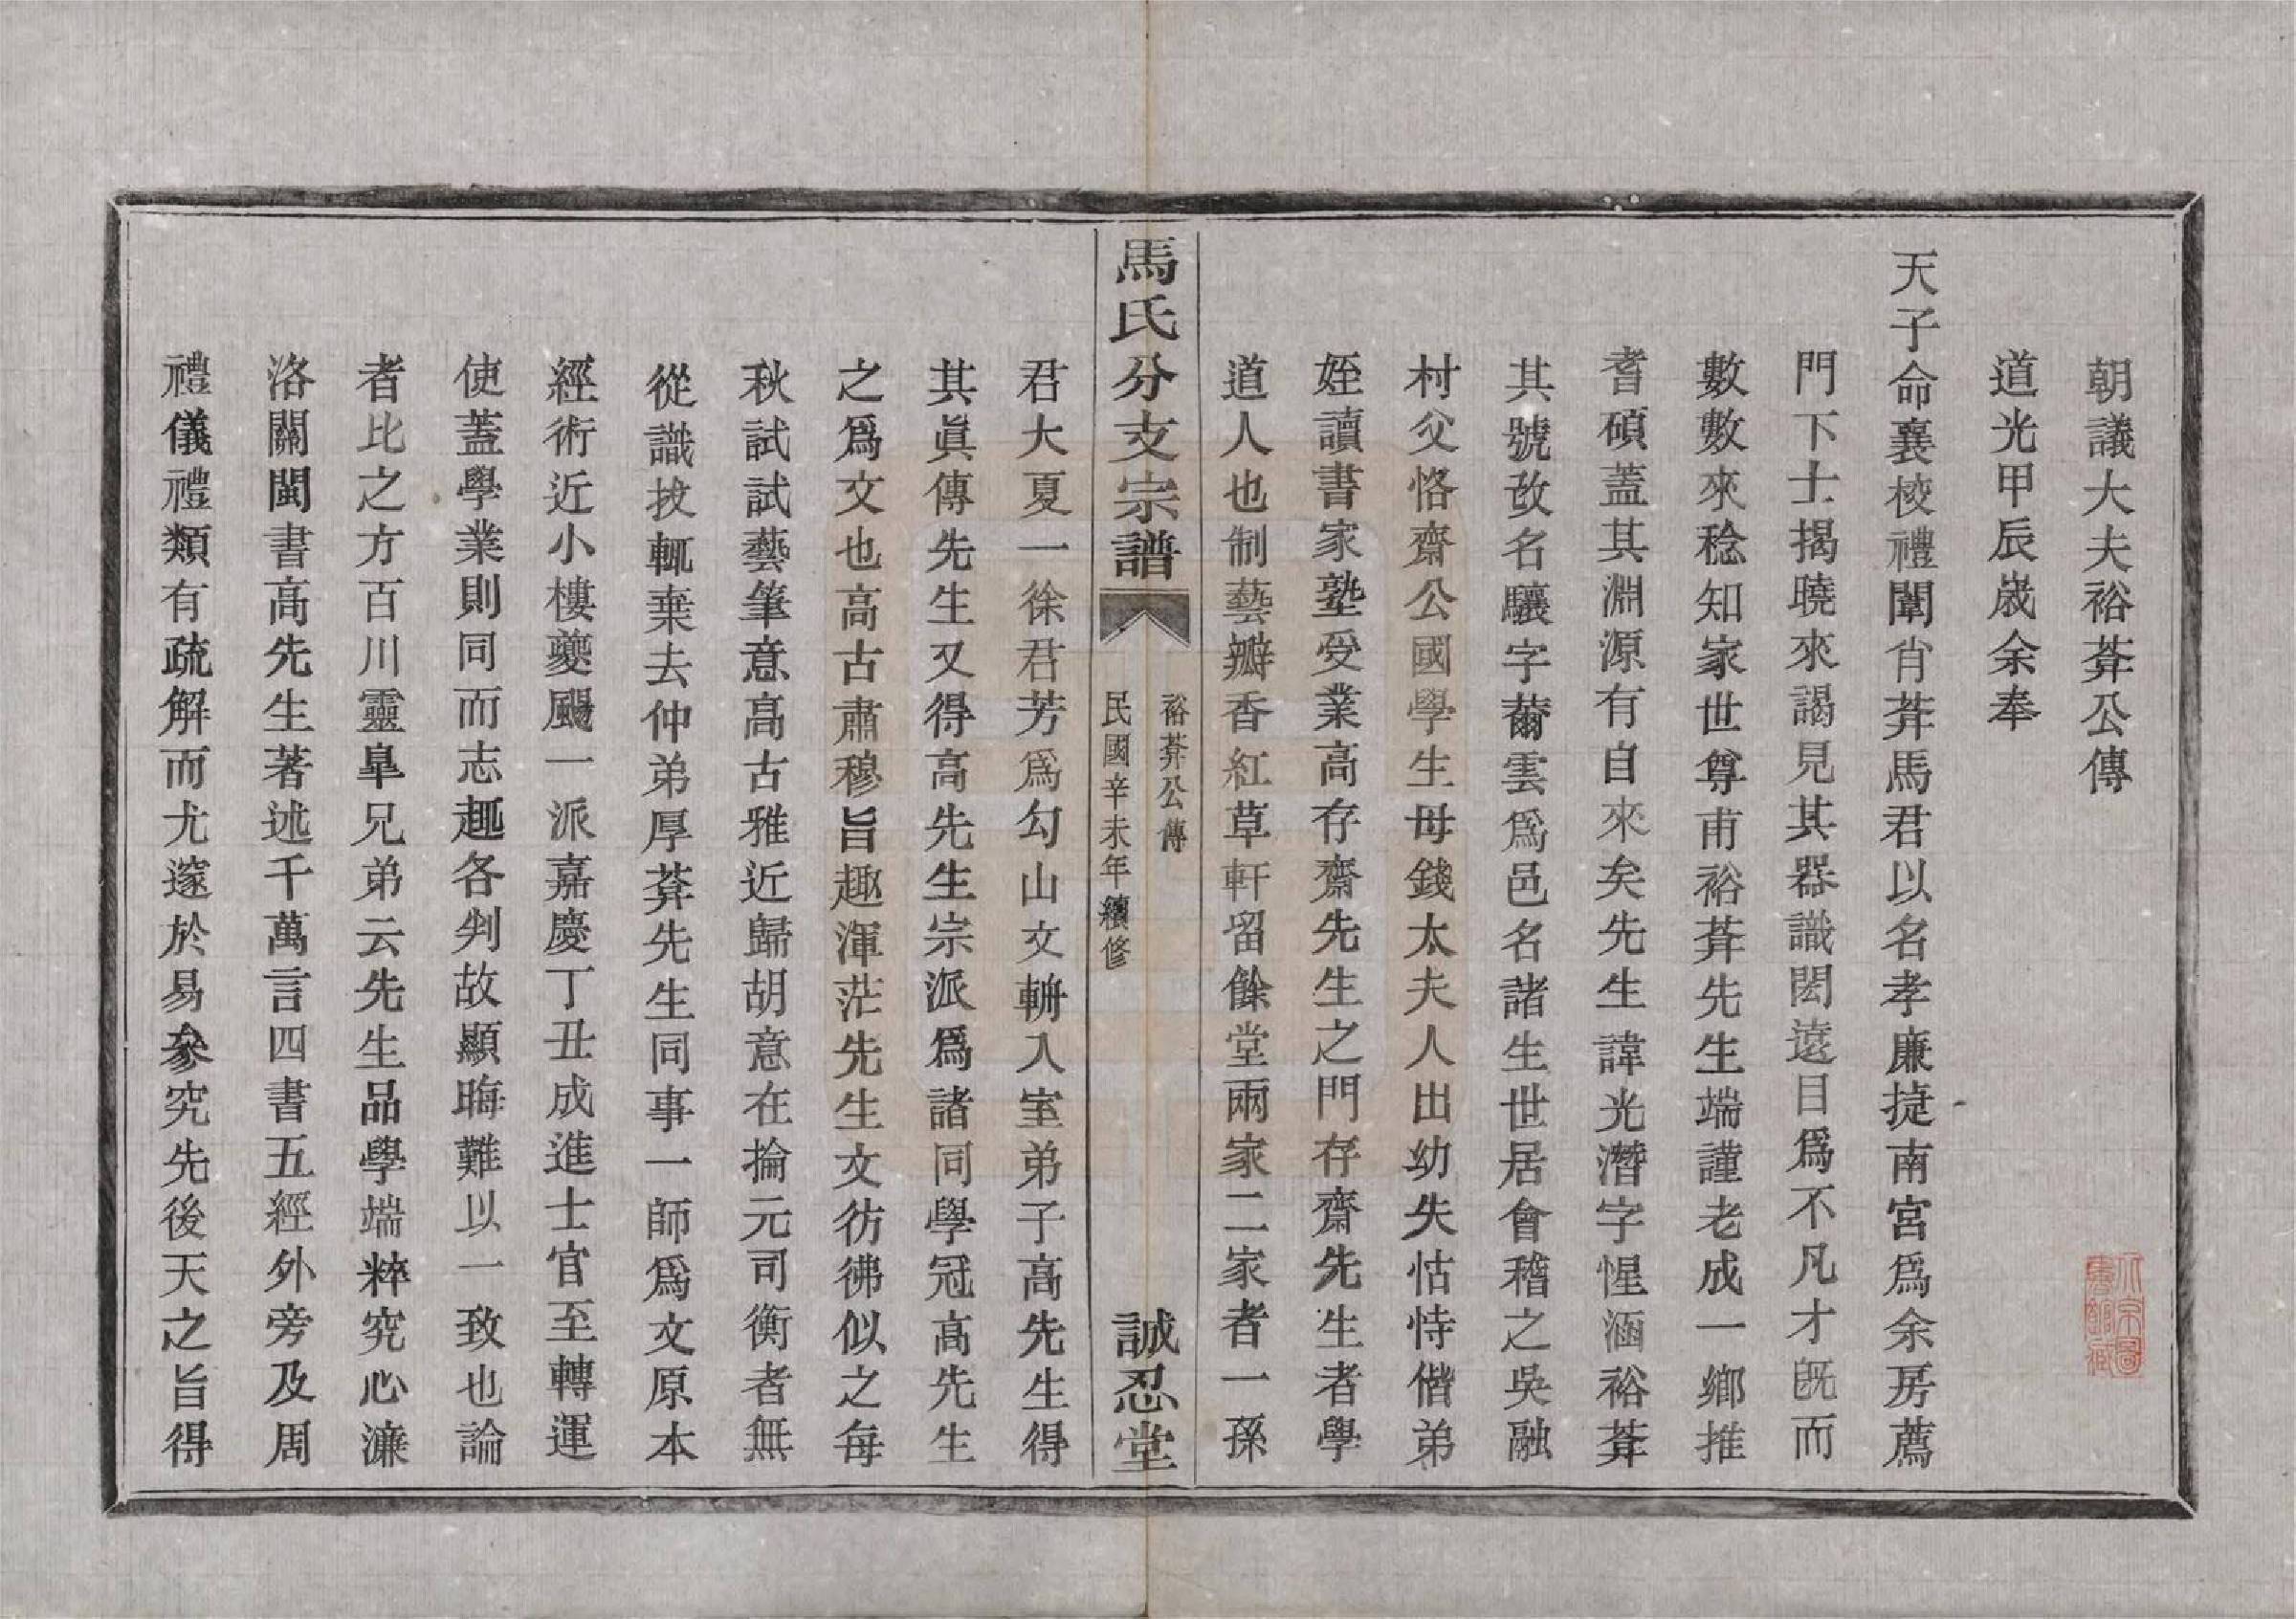 朝議大夫裕葊公傳
道光甲辰歲余奉
天子命襄校禮闈肖葊馬君以名孝廉捷南宮爲余房薦
門下士揭曉來謁見其器識閎遠目爲不凡才旣而
數數來稔知家世尊甫裕葊先生端謹老成一鄉推
耆碩蓋其淵源有自來矣先生諱光濳字惺涵裕葊
其號改名驤字薾雲爲邑名諸生世居會稽之吳融
村父恪齋公國學生母錢太夫人出幼失怙恃偕弟
姪讀書家塾受業高存齋先生之門存齋先生者學
道人也制藝瓣香紅草軒留餘堂兩家二家者一孫
馬氏分支宗譜
裕葊公傳
民國辛未年續修
誠忍堂
君大夏一徐君芳爲勾山文軿入室弟子高先生得
其眞傳先生又得高先生宗派爲諸同學冠高先生
之爲文也高古肅穆旨趣渾茫先生文彷彿似之每
秋試試藝筆意高古雅近歸胡意在掄元司衡者無
從識拔輒棄去仲弟厚葊先生同事一師爲文原本
經術近小樓夔颺一派嘉慶丁丑成進士官至轉運
使蓋學業則同而志趣各判故顯晦難以一致也論
者比之方百川靈臯兄弟云先生品學端粹究心濂
洛關閩書高先生著述千萬言四書五經外旁及周
禮儀禮類有疏解而尤邃於易參究先後天之旨得